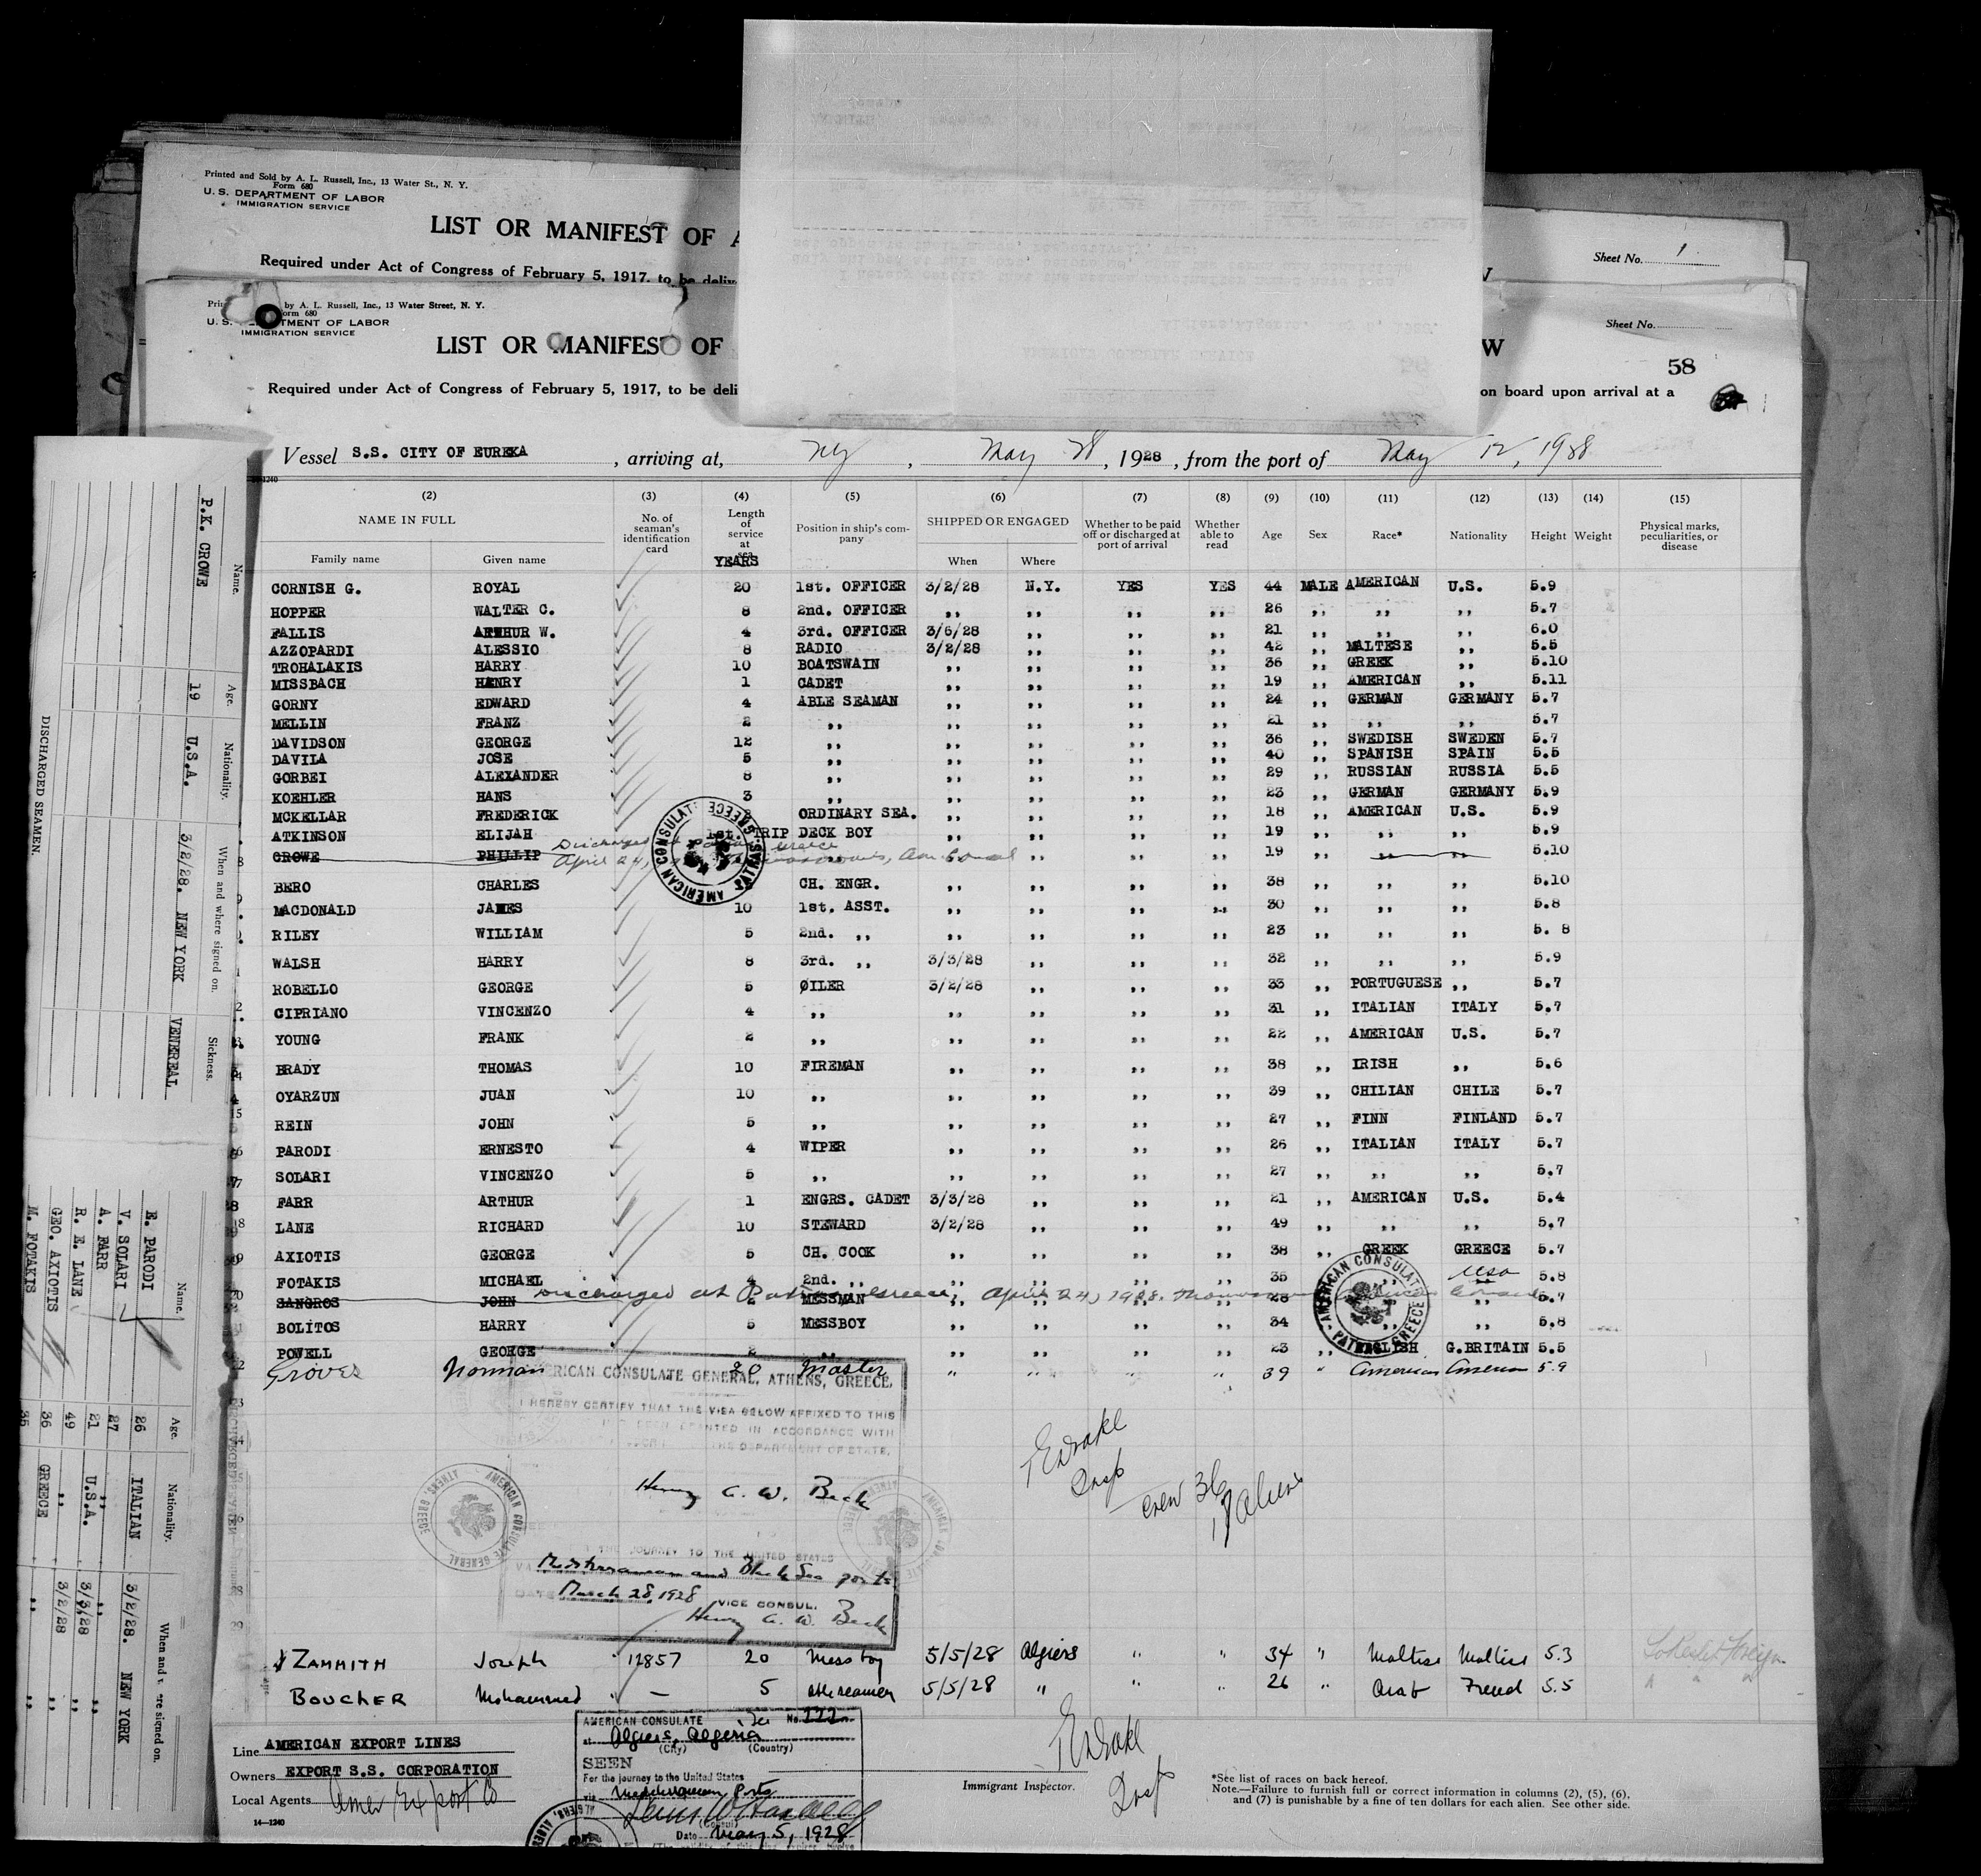 Printed and Sold by A. L. Russell, Inc., 13 Water St., N. Y.
Form 680
U. S. DEPARTMENT OF LABOR
IMMIGRATION SERVICE
LIST OR MANIFEST OF
Sheet No. 1
Required under Act of Congress of February 5, 1917, to be
by A. L. Russell, Inc., 13 Water Street, N. Y.
Form 680
U. S. DEPARTMENT OF LABOR
IMMIGRATION SERVICE
Sheet No.
LIST OR MANIFEST OF W
58
Required under Act of Congress of February 5, 1917, to be deli on board upon arrival at a
Vessel S.S. CITY OF EUREKA, arriving at, NY, May 28, 1928, from the port of May 12, 1928
14-1240
(2) (3) (4) (5) (6) (7) (8) (9) (10) (11) (12) (13) (14) (15)
NAME IN FULL No. of seaman's identification card Length of service at sea YEARS Position in ship's company SHIPPED OR ENGAGED Whether to be paid off or discharged at port of arrival Whether able to read Age Sex Race* Nationality Height Weight Physical marks, peculiarities, or disease
Family name Given name When Where
CORNISH G. ROYAL 20 1st. OFFICER 3/2/28 N.Y. YES YES 44 MALE AMERICAN U.S. 5.9
HOPPER WALTER C. 8 2nd. OFFICER ,, ,, ,, ,, 26 ,, ,, ,, 5.7
FALLIS ARTHUR W. 4 3rd. OFFICER 3/6/28 ,, ,, ,, 21 ,, ,, ,, 6.0
AZZOPARDI ALESSIO 8 RADIO 3/2/28 ,, ,, ,, 42 ,, MALTESE ,, 5.5
TROHALAKIS HARRY 10 BOATSWAIN ,, ,, ,, ,, 36 ,, GREEK ,, 5.10
MISSBACH HENRY 1 CADET ,, ,, ,, ,, 19 ,, AMERICAN ,, 5.11
GORNY EDWARD 4 ABLE SEAMAN ,, ,, ,, ,, 24 ,, GERMAN GERMANY 5.7
MELLIN FRANZ 2 ,, ,, ,, ,, ,, 21 ,, ,, ,, 5.7
DAVIDSON GEORGE 12 ,, ,, ,, ,, ,, 36 ,, SWEDISH SWEDEN 5.7
DAVILA JOSE 5 ,, ,, ,, ,, ,, 40 ,, SPANISH SPAIN 5.5
GORBEI ALEXANDER 8 ,, ,, ,, ,, ,, 29 ,, RUSSIAN RUSSIA 5.5
KOEHLER HANS 3 ,, ,, ,, ,, ,, 23 ,, GERMAN GERMANY 5.9
MCKELLAR FREDERICK ORDINARY SEA. ,, ,, ,, ,, 18 ,, AMERICAN U.S. 5.9
ATKINSON ELIJAH 1st. TRIP DECK BOY ,, ,, ,, ,, 19 ,, ,, ,, 5.9
Discharged at Patras Greece
CROWE PHILLIP ,, ,, ,, ,, 19 ,, ,, ,, 5.10
April 24,
AMERICAN CONSULATE PATRAS, GREECE
BERO CHARLES CH. ENGR. ,, ,, ,, ,, 38 ,, ,, ,, 5.10
MACDONALD JAMES 10 1st. ASST. ,, ,, ,, ,, 30 ,, ,, ,, 5.8
RILEY WILLIAM 5 2nd. ,, ,, ,, ,, ,, 23 ,, ,, ,, 5. 8
WALSH HARRY 8 3rd. ,, 3/3/28 ,, ,, ,, 32 ,, ,, ,, 5.9
ROBELLO GEORGE 5 OILER 3/2/28 ,, ,, ,, 33 ,, PORTUGUESE ,, 5.7
CIPRIANO VINCENZO 4 ,, ,, ,, ,, ,, 31 ,, ITALIAN ITALY 5.7
YOUNG FRANK 2 ,, ,, ,, ,, ,, 22 ,, AMERICAN U.S. 5.7
BRADY THOMAS 10 FIREMAN ,, ,, ,, ,, 38 ,, IRISH ,, 5.6
OYARZUN JUAN 10 ,, ,, ,, ,, ,, 39 ,, CHILIAN CHILE 5.7
REIN JOHN 5 ,, ,, ,, ,, ,, 27 ,, FINN FINLAND 5.7
PARODI ERNESTO 4 WIPER ,, ,, ,, ,, 26 ,, ITALIAN ITALY 5.7
SOLARI VINCENZO 5 ,, ,, ,, ,, ,, 27 ,, ,, ,, 5.7
FARR ARTHUR 1 ENGRS. CADET 3/3/28 ,, ,, ,, 21 ,, AMERICAN U.S. 5.4
LANE RICHARD 10 STEWARD 3/2/28 ,, ,, ,, 49 ,, ,, ,, 5.7
AXIOTIS GEORGE 5 CH. COOK ,, ,, ,, ,, 38 ,, GREEK GREECE 5.7
FOTAKIS MICHAEL 4 2nd. ,, ,, ,, ,, ,, 35 ,, ,, USA 5.8
SANGROS JOHN 2 MESSMAN ,, ,, ,, ,, 28 ,, ,, 5.7
Discharged at Patras Greece, April 24, 1928.
BOLITOS HARRY 5 MESSBOY ,, ,, ,, ,, 34 ,, ,, ,, 5.8
POWELL GEORGE 2 ,, ,, ,, ,, ,, 23 ,, ENGLISH G.BRITAIN 5.5
AMERICAN CONSULATE PATRAS, GREECE
Groves Norman 20 Master " " " " 39 " American American 5.9
AMERICAN CONSULATE GENERAL, ATHENS, GREECE.
I HEREBY CERTIFY THAT THE VISA BELOW AFFIXED TO THIS
GRANTED IN ACCORDANCE WITH
THE DEPARTMENT OF STATE.
Henry G. W. Beck
AMERICAN CONSULATE GENERAL ATHENS, GREECE
THE JOURNEY TO THE UNITED STATES
Mediterranean and Black Sea ports
DATE March 28, 1928
VICE CONSUL.
Henry G. W. Beck
Drake
Insp
crew 36
aliens
ZAMMITH Joseph 12857 20 Mess boy 5/5/28 Algiers " " 34 " Maltese Maltese 5.3
BOUCHER Mohammed — 5 able seaman 5/5/28 " " " 26 " Arab French 5.5
Line AMERICAN EXPORT LINES
Owners EXPORT S.S. CORPORATION
Local Agents Amer Export Co
14—1240
AMERICAN CONSULATE No. 222
at Algiers, Algeria
(City) (Country)
SEEN
For the journey to the United States
via Mediterranean Ports
(Consul)
Date May 5, 1928
Drake
Insp
Immigrant Inspector.
*See list of races on back hereof.
Note.—Failure to furnish full or correct information in columns (2), (5), (6),
and (7) is punishable by a fine of ten dollars for each alien. See other side.
DISCHARGED SEAMEN.
Name. Age. Nationality. When and where signed on. Sickness.
P.K. CROWE 19 U.S.A. 3/2/28. NEW YORK VENEREAL
Name. Age. Nationality. When and where signed on.
E. PARODI 26 ITALIAN 3/2/28. NEW YORK
V. SOLARI 27 ,, ,, ,,
A. FARR 21 U.S.A. 3/3/28 ,,
R. E. LANE 49 ,, 3/2/28 ,,
GEO. AXIOTIS 36 GREECE ,, ,,
M. FOTAKIS 35